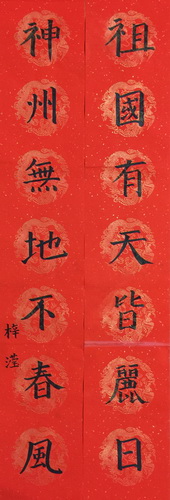 祖國有天皆麗日
神州無地不春風
梓瀅